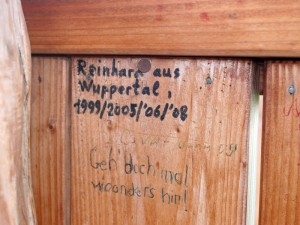 Reinhard aus
Wuppertal,
1999/2005/'06/'08
Geh' doch mal
woanders hin!